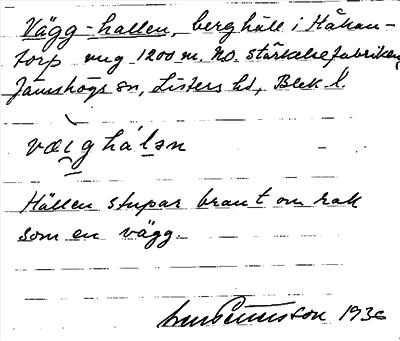 Vägg-hallen, berghäll i Håkan-
torp ung 1200 m. NO. stärkelsefabriken,
Jämshögs sn, Listers hd, Blek. l.
væighálən
Hällen stupar brant om rak
som en vägg.
1936